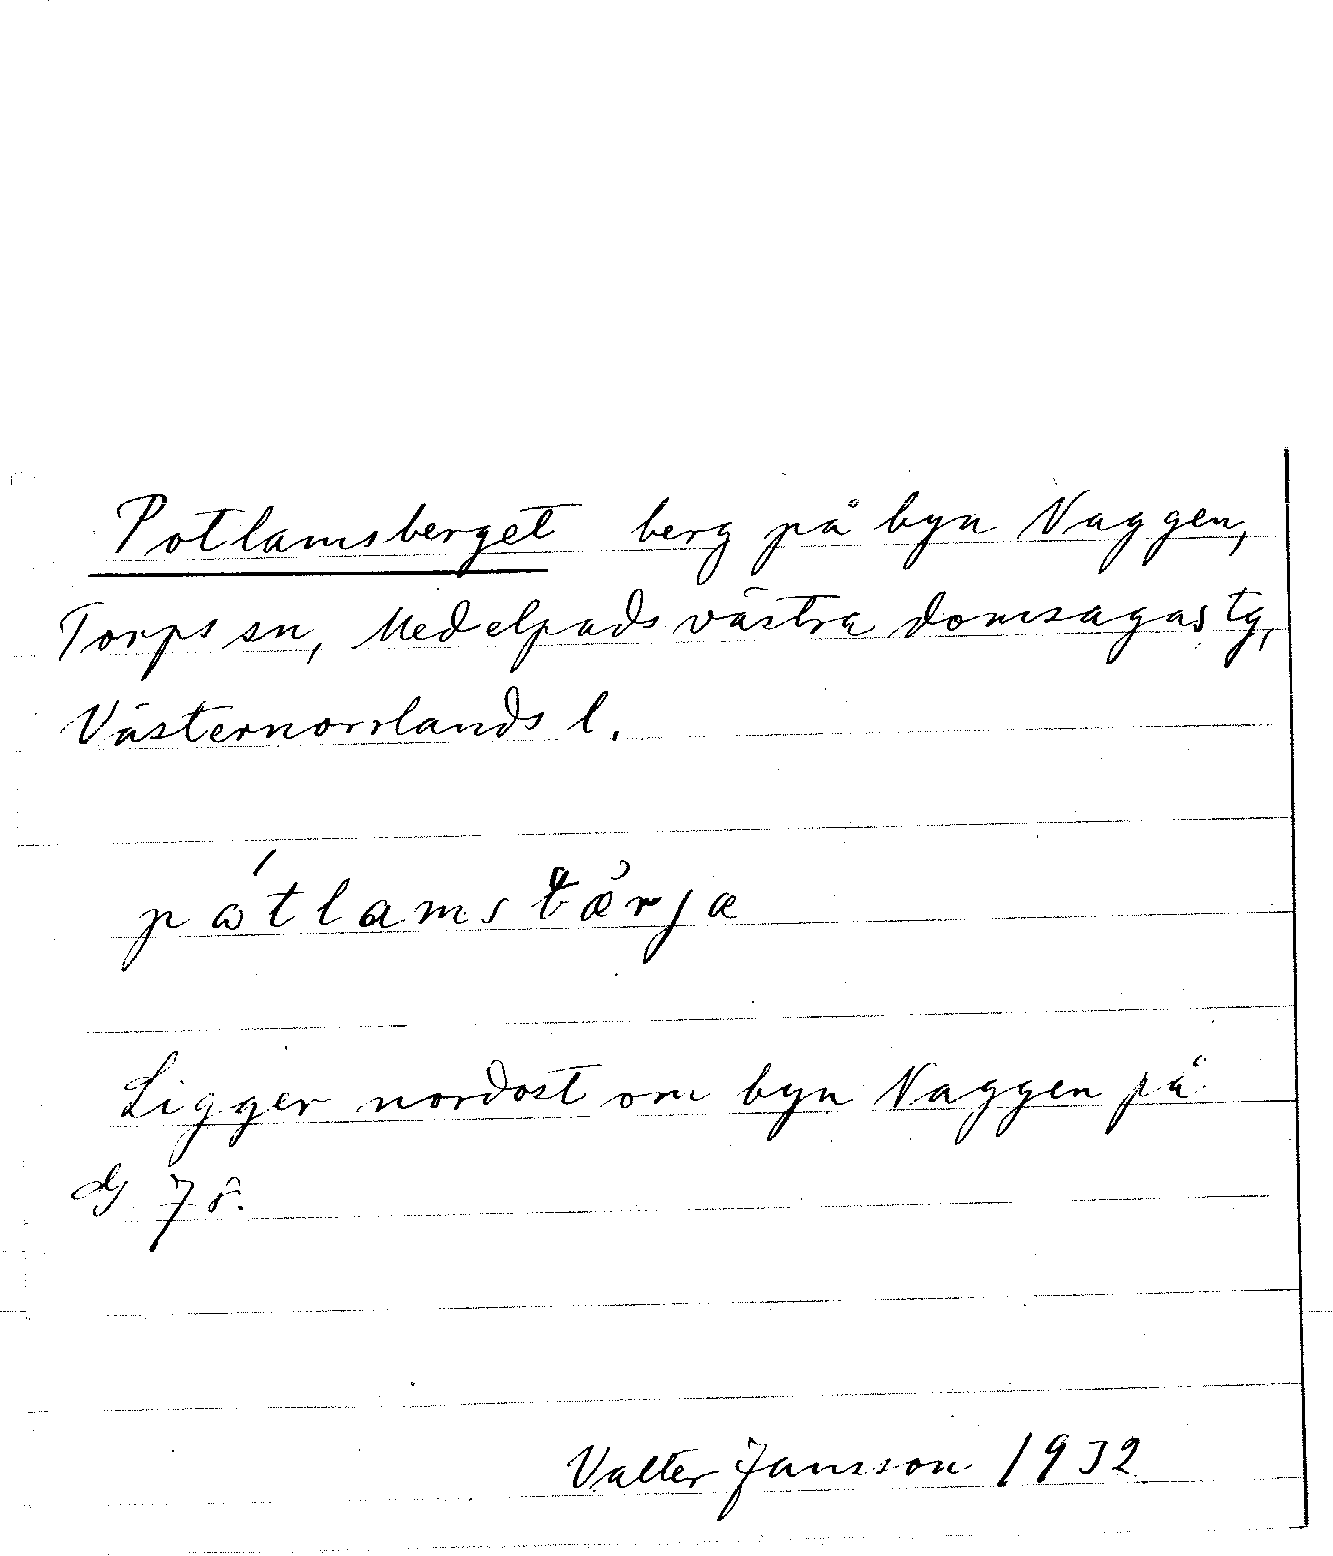 Potlamsberget berg på byn Naggen,
Torps sn, Medelpads västra domsagas tg,
Västernorrlands l.
Ligger nordost om byn Naggen på
G 78.
Valter Jansson 1932